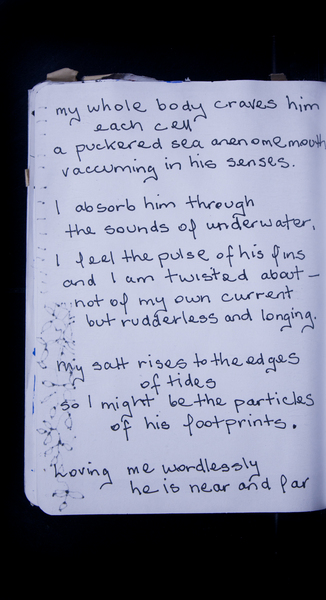 my whole body craves him
each cell
a puckered sea anenome mouth
vaccuming in his senses.
I absorb him through
the sounds of underwater,
I feel the pulse of his fins
and I am twisted about—
not of my own current
but rudderless and longing.
my salt rises to the edges
of tides
so I might be the particles
of his footprints.
Loving me wordlessly
he is near and far